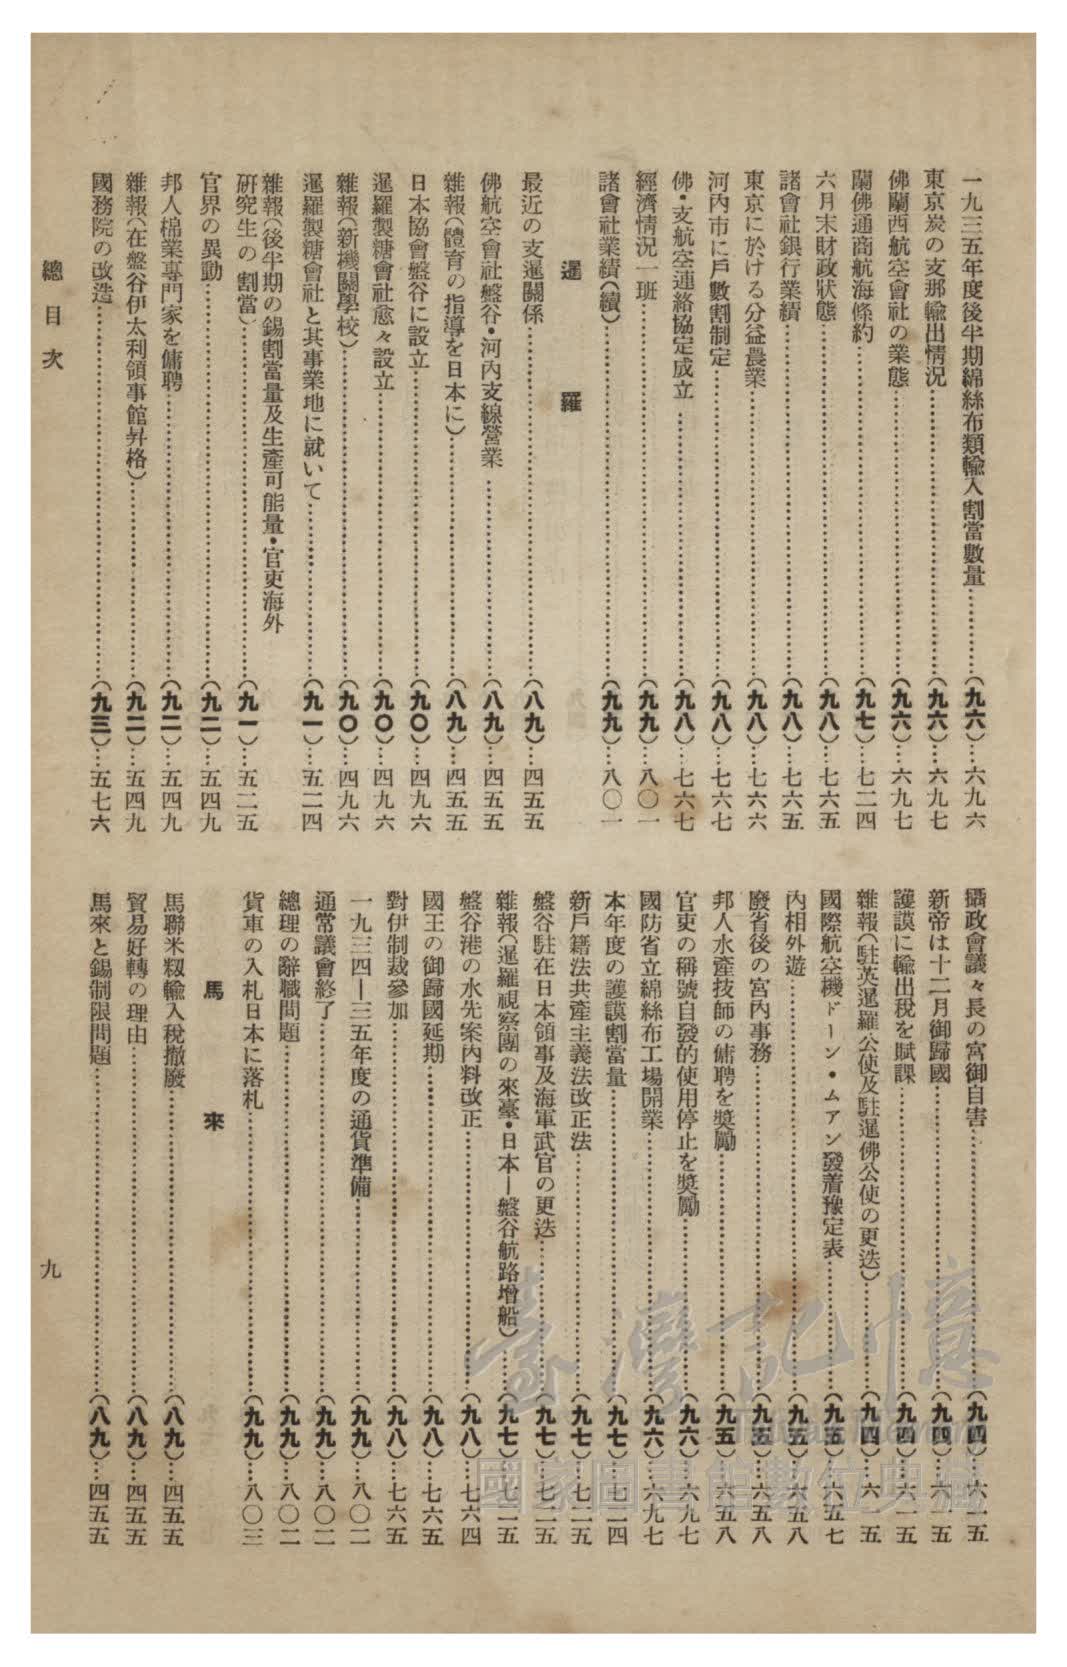 一九三五年度後半期綿絲布類輸入割當數量……(九六)…六九六
東京炭の支那輸出情況……(九六)…六九七
佛蘭西航空會社の業態……(九六)…六九七
蘭佛通商航海條約……(九七)…七二四
六月末財政狀態……(九八)…七六五
諸會社銀行業績……(九八)…七六五
東京に於ける分益農業……(九八)…七六六
河內市に戶數割制定……(九八)…七六七
佛・支航空連絡協定成立……(九八)…七六七
經濟情況一班……(九九)…八〇一
諸會社業績(續)……(九九)…八〇一
暹羅
最近の支暹關係……(八九)…四五五
佛航空會社盤谷・河內支線營業……(八九)…四五五
雜報(體育の指導を日本に)……(八九)…四五五
日本協會盤谷に設立……(九〇)…四九六
暹羅製糖會社愈々設立……(九〇)…四九六
雜報(新機關學校)……(九〇)…四九六
暹羅製糖會社と其事業地に就いて……(九一)…五二四
雜報(後半期の錫割當量及生產可能量・官吏海外
硏究生の割當)……(九一)…五二五
官界の異動……(九二)…五四九
邦人棉業專門家を傭聘……(九二)…五四九
雜報(在盤谷伊太利領事館昇格)……(九二)…五四九
國務院の改造……(九三)…五七六
攝政會議々長の宮御自害……(九四)…六一五
新帝は十二月御歸國……(九四)…六一五
護謨に輸出稅を賦課……(九四)…六一五
雜報(駐英暹羅公使及駐暹佛公使の更迭)……(九四)…六一五
國際航空機ドーン・ムアン發着豫定表……(九五)…六五七
內相外遊……(九五)…六五八
廢省後の宮內事務……(九五)…六五八
邦人水產技師の傭聘を奬勵……(九五)…六五八
官吏の稱號自發的使用停止を奬勵……(九六)…六九七
國防省立綿絲布工場開業……(九六)…六九七
本年度の護謨割當量……(九七)…七二四
新戶籍法共產主義法改正法……(九七)…七二五
盤谷駐在日本領事及海軍武官の更迭……(九七)…七二五
雜報(暹羅視察團の來臺・日本—盤谷航路增船)……(九七)…七二五
盤谷港の水先案內料改正……(九八)…七六四
國王の御歸國延期……(九八)…七六五
對伊制裁參加……(九八)…七六五
一九三四—三五年度の通貨準備……(九九)…八〇二
通常議會終了……(九九)…八〇二
總理の辭職問題……(九九)…八〇二
貨車の入札日本に落札……(九九)…八〇三
馬來
馬聯米籾輸入稅撤廢……(八九)…四五五
貿易好轉の理由……(八九)…四五五
馬來と錫制限問題……(八九)…四五五
總目次
九
臺灣記憶
Taiwan Memory
國家圖書館數位典藏